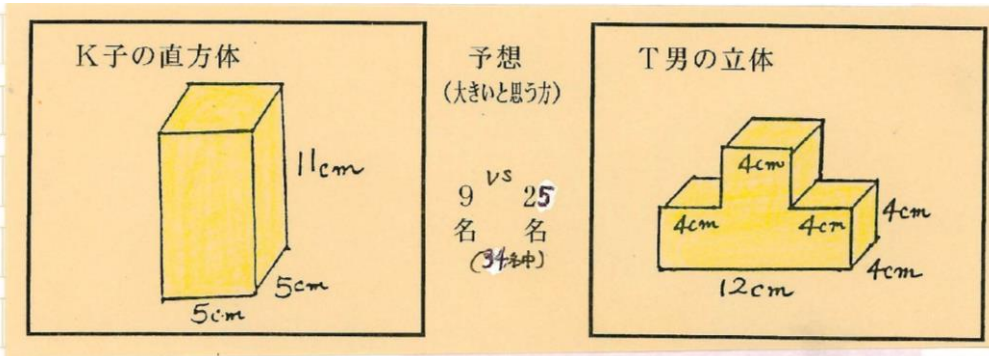 K子の直方体
11cm
5cm
5cm
予想
(大きいと思う方)
9名 vs 25名
(34名中)
T男の立体
4cm
4cm
4cm
4cm
4cm
12cm